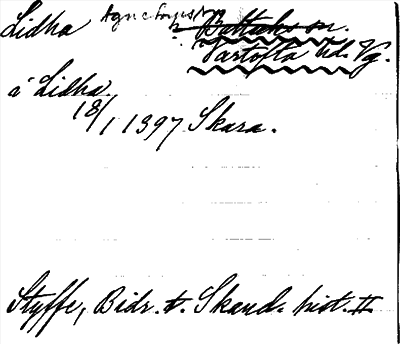 Lidha Agnetorps sn Bältaks sn.
Vartofta hd. Vg.
å Lidha
18/1 1397 Skara.
Styffe, Bidr. t. Skand. hist. II